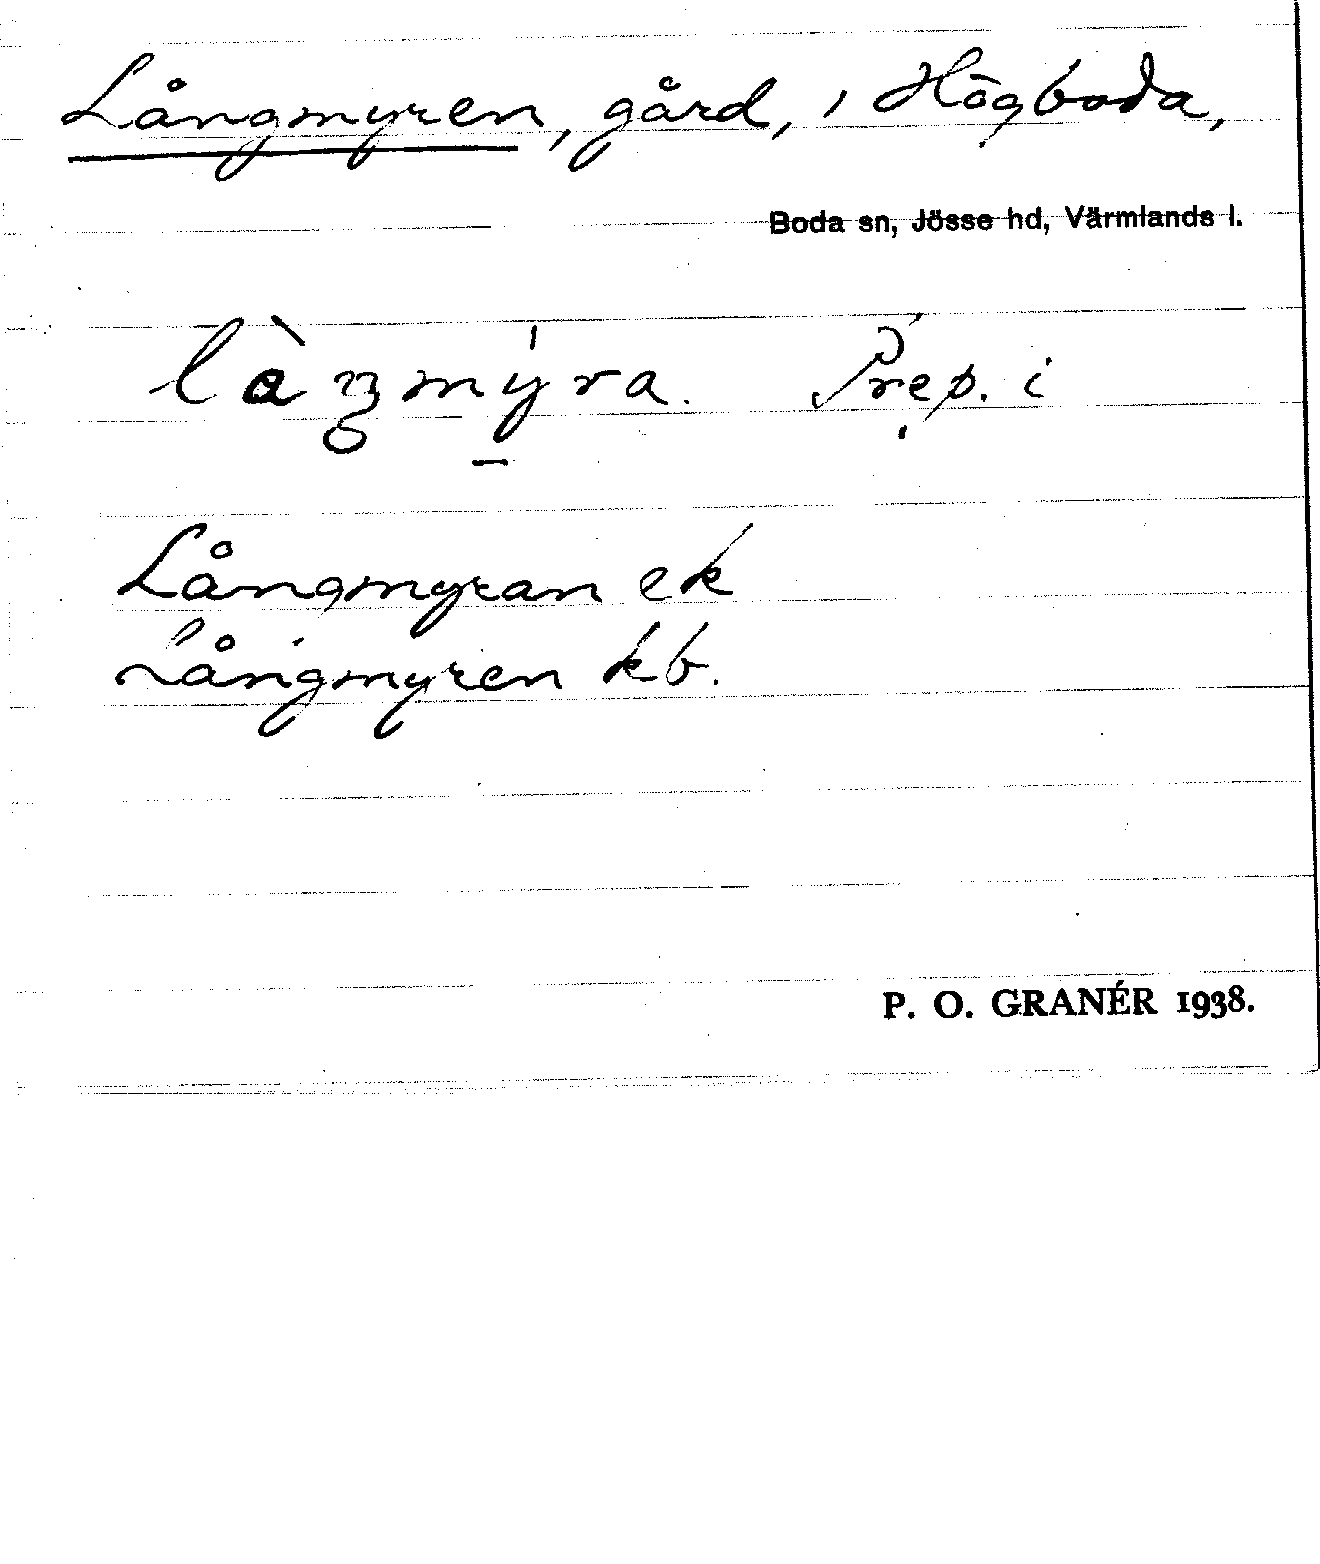 Långmyren, gård, i Högboda,
Boda sn, Jösse hd, Värmlands l.
làŋmýra. Prep. i
Långmyran ek
Långmyren kb.
P. O. GRANÉR 1938.